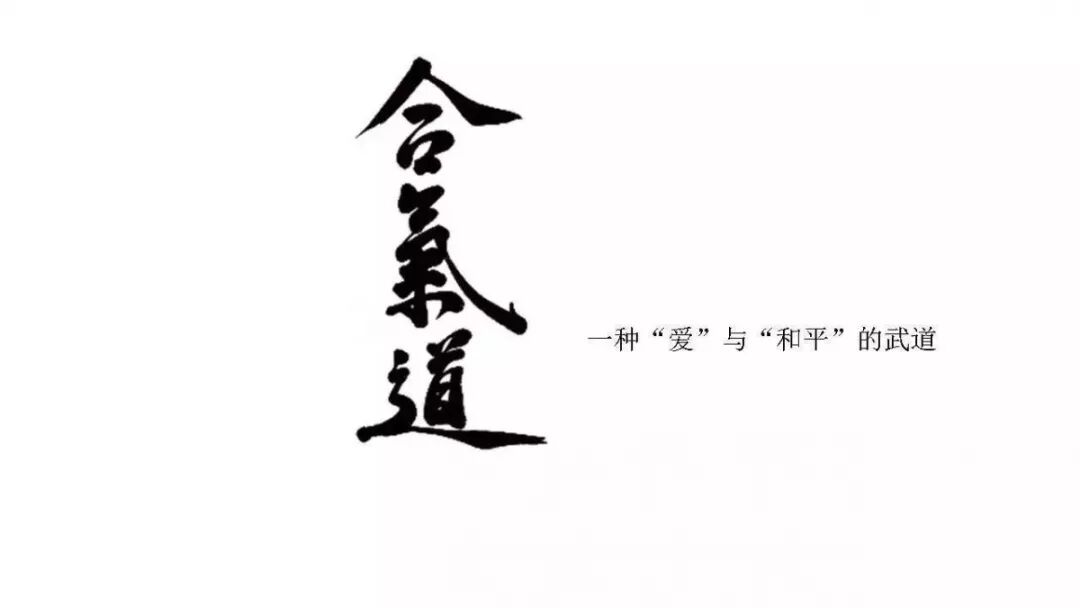 合氣道
一种“爱”与“和平”的武道